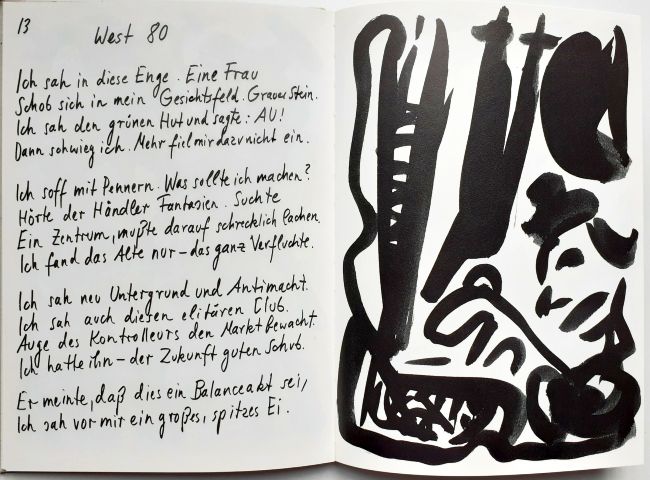 13
West 80
Ich sah in diese Enge. Eine Frau
Schob sich in mein Gesichtsfeld. Grauer Stein.
Ich sah den grünen Hut und sagte: AU!
Dann schwieg ich. Mehr fiel mir dazu nicht ein.
Ich soff mit Pennern. Was sollte ich machen?
Hörte der Händler Fantasien. Suchte
Ein Zentrum, mußte darauf schrecklich lachen,
Ich fand das Alte nur – das ganz Verfluchte.
Ich sah neu Untergrund und Antimacht.
Ich sah auch diesen elitären Club.
Auge des Kontrolleurs den Markt bewacht.
Ich hatte ihn – der Zukunft guten Schub.
Er meinte, daß dies ein Balanceakt sei,
Ich sah vor mir ein großes, spitzes Ei.